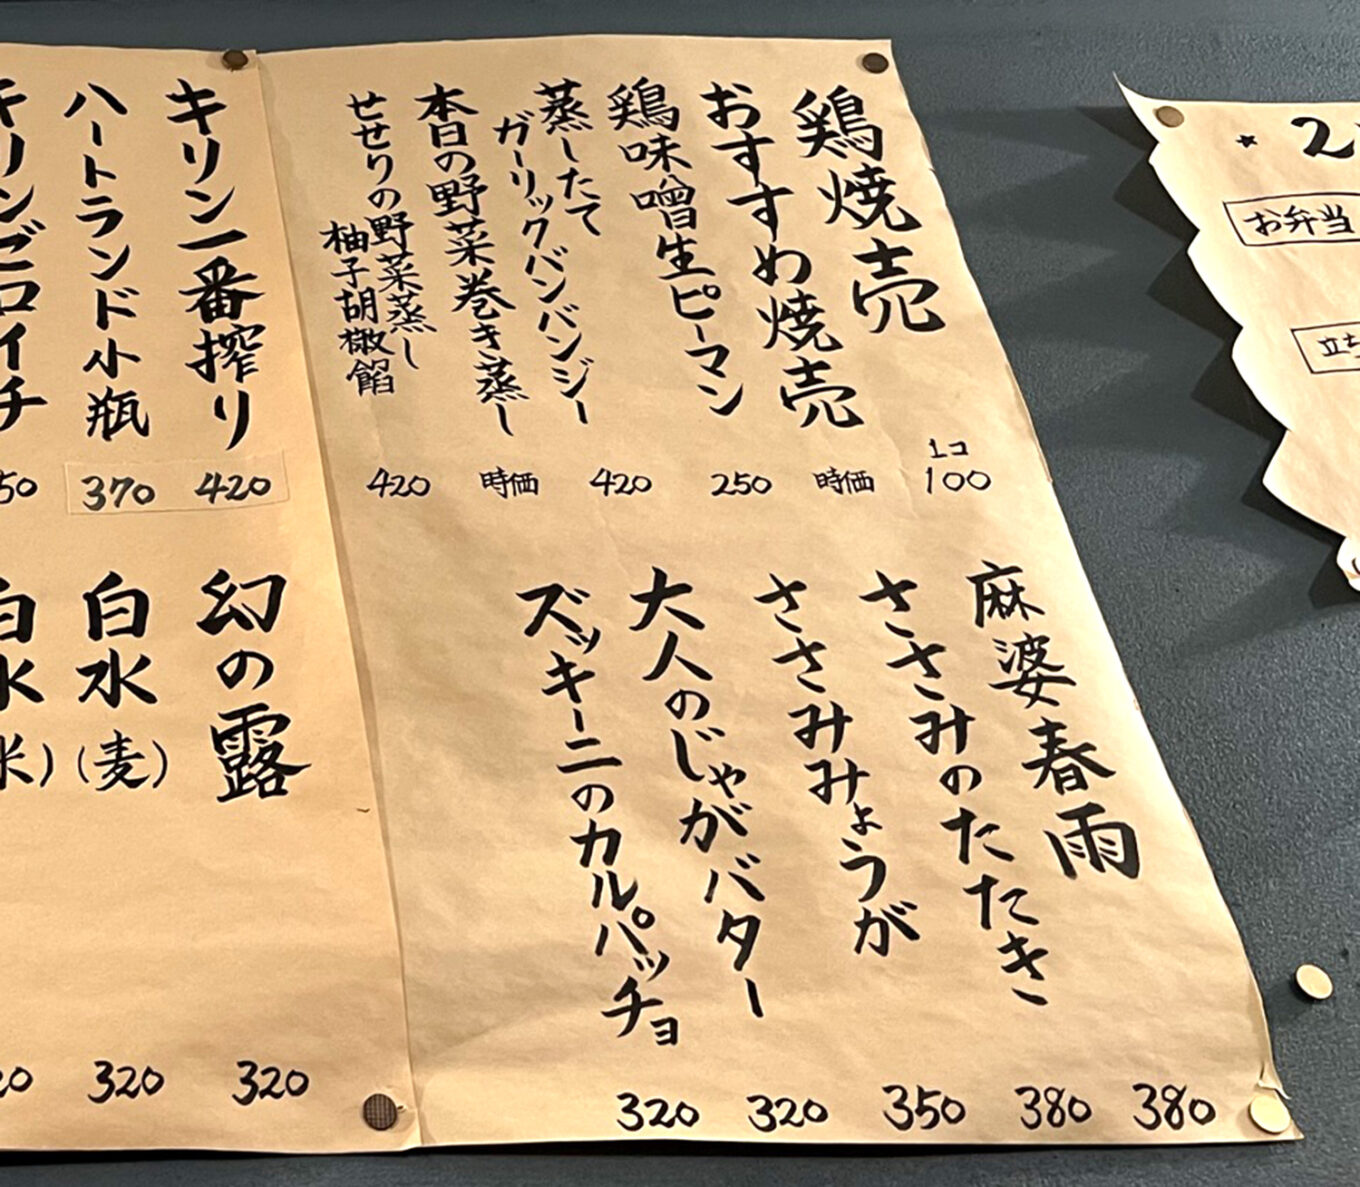 鶏焼売
1コ
100
おすすめ焼売
時価
鶏味噌生ピーマン
250
蒸したて
ガーリックバンバンジー
420
本日の野菜巻き蒸し
時価
せせりの野菜蒸し
柚子胡椒餡
420
麻婆春雨
380
ささみのたたき
380
ささみみょうが
350
大人のじゃがバター
320
ズッキーニのカルパッチョ
320
キリン一番搾り
420
ハートランド小瓶
370
キリンゼロイチ
50
幻の露
320
白水(麦)
320
白水(米)
20
お弁当
立ち